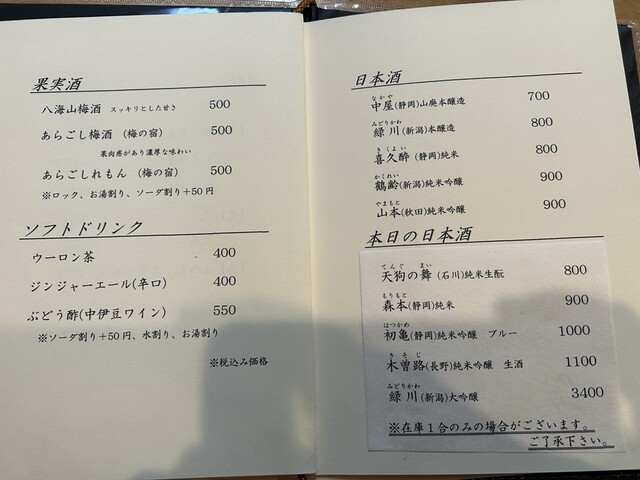 果実酒
八海山梅酒 スッキリとしたせさ 500
あらごし梅酒 (梅の宿) 500
果肉感があり濃厚な味わい
あらごしれもん (梅の宿) 500
※ロック、お湯割り、ソーダ割り＋50円
ソフトドリンク
ウーロン茶 400
ジンジャーエール(辛口) 400
ぶどう酢(中伊豆ワイン) 550
※ソーダ割り＋50円、水割り、お湯割り
※税込み価格
日本酒
なかや
中屋(静岡)山廃本醸造 700
みどりかわ
緑川(新潟)本醸造 800
きくよい
喜久酔 (静岡)純米 800
かくれい
鶴齢(新潟)純米吟醸 900
やまもと
山本(秋田)純米吟醸 900
本日の日本酒
てんぐ まい
天狗の舞 (石川)純米生酛 800
もりもと
森本(静岡)純米 900
はつかめ
初亀(静岡)純米吟醸 ブルー 1000
きそじ
木曽路(長野)純米吟醸 生酒 1100
みどりかわ
緑川(新潟)大吟醸 3400
※在庫１合のみの場合がございます。
ご了承下さい。